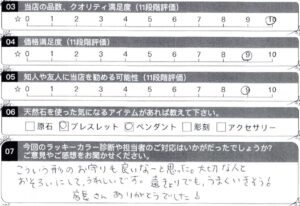 03 当店の品数、クオリティ満足度（11段階評価）
☆ 0 1 2 3 4 5 6 7 8 9 10
04 価格満足度（11段階評価）
☆ 0 1 2 3 4 5 6 7 8 9 10
05 知人や友人に当店を勧める可能性（11段階評価）
☆ 0 1 2 3 4 5 6 7 8 9 10
06 天然石を使った気になるアイテムがあれば教えて下さい。
□ 原石 □ ブレスレット □ ペンダント □ 彫刻 □ アクセサリー
07 今回のラッキーカラー診断や担当者のご対応はいかがだったでしょうか？
ご意見やご感想をお聞かせください。
こういう形のお守りも良いなこと思った。大切な人と
おそろいにして、うれしいです。遠きょりでも、うまくいきそう！
さん ありがとうでした！